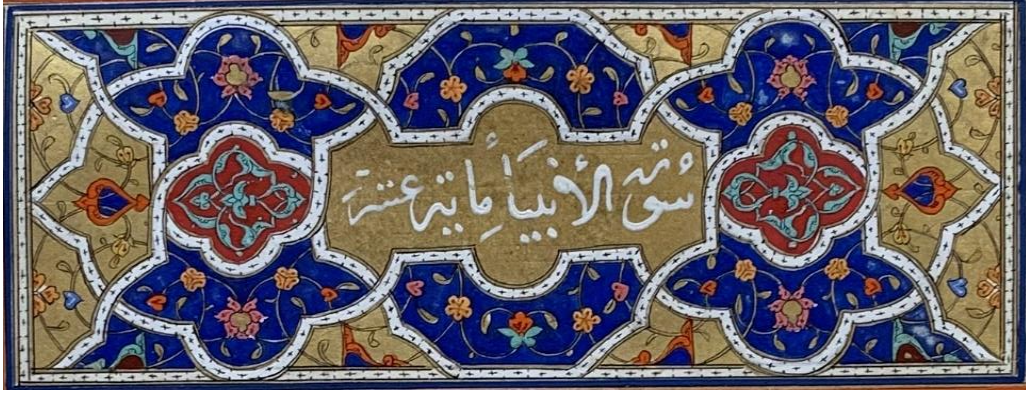 سورة الأنبيا مأية عشرة